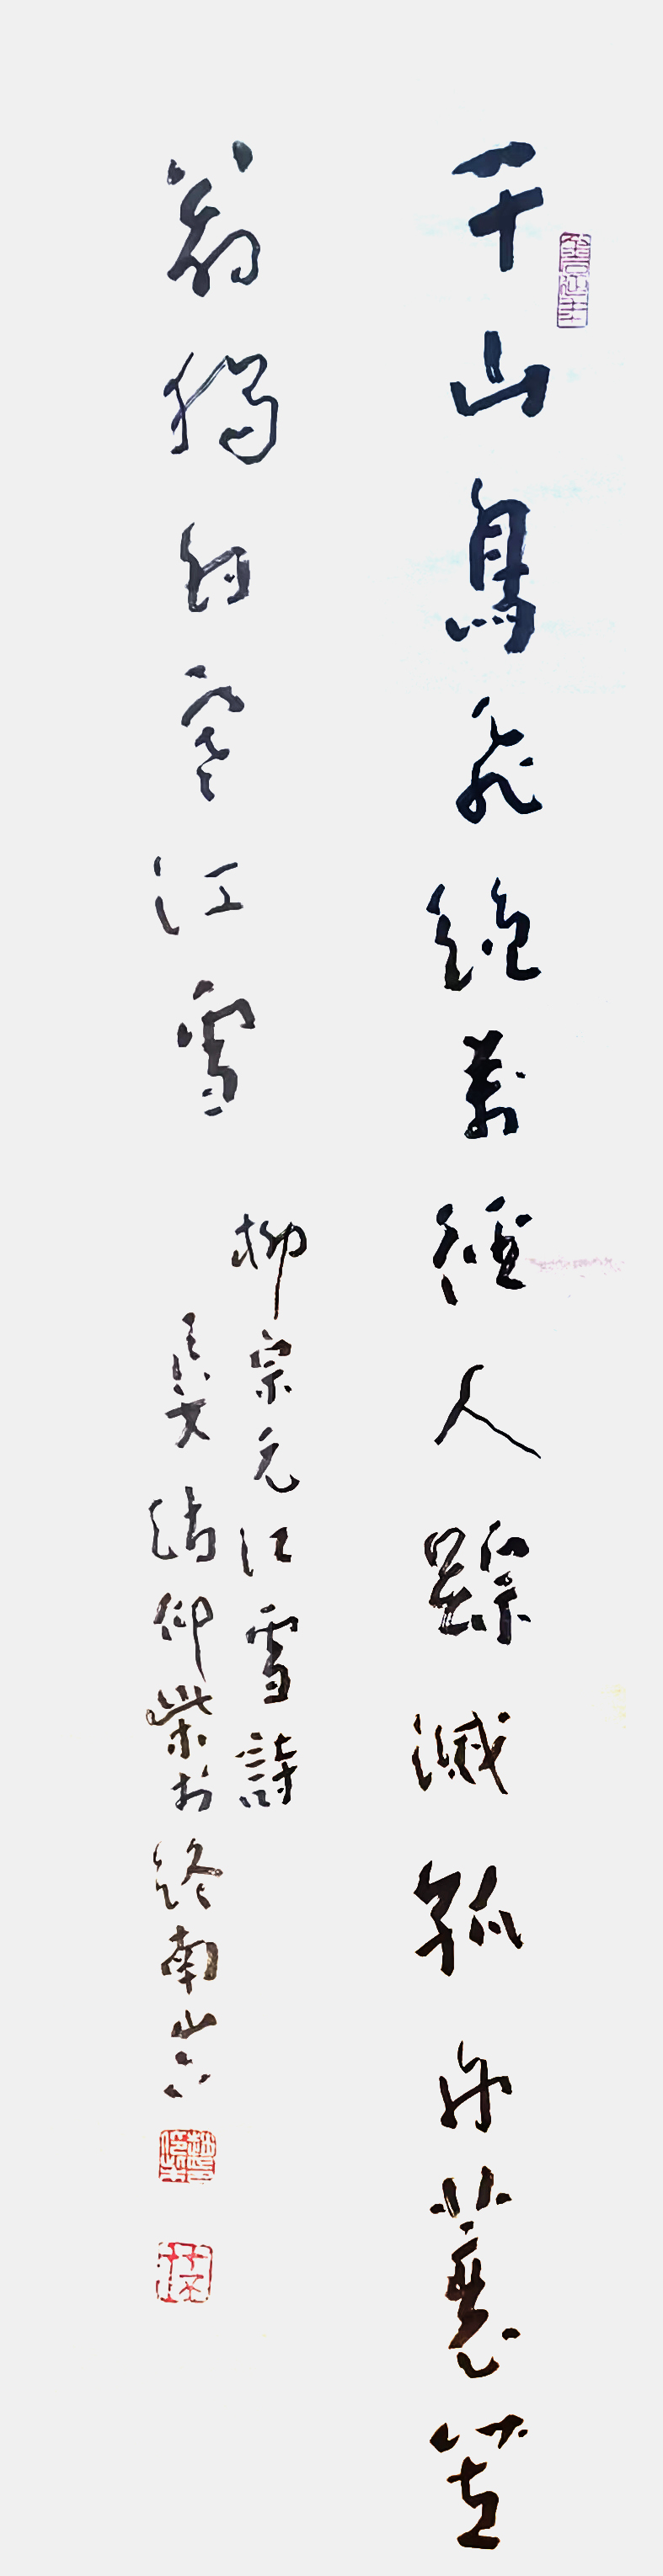 千山鳥飛絶萬徑人踪滅孤舟蓑笠
翁獨釣寒江雪
柳宗元江雪詩
仰柴於終南山下